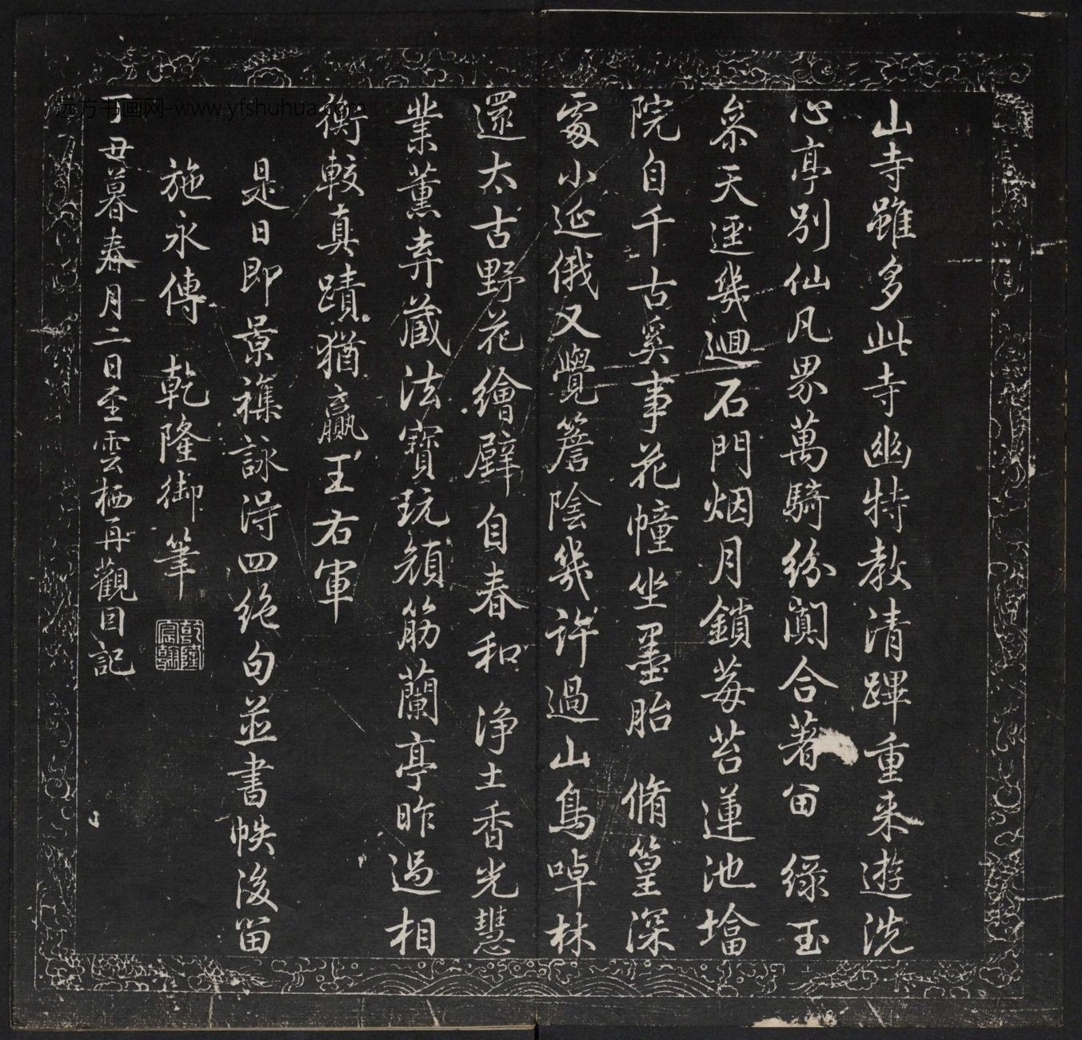 山寺雖多此寺幽特教清蹕重来遊洗
心亭別仙凡界萬騎紛闐合著㽞 緑玉
叅天逕幾迴石門烟月鎖莓苔蓮池墖
院自千古奚事花幢坐墨胎 脩篁深
處小延俄又覺簷陰幾許過山鳥啅林
還太古野花繪壁自春和 浄土香光慧
業薰弆藏法寶玩顔筋蘭亭昨過相
衡較真蹟猶贏王右軍
是日即景襍詠得四絶句並書帙後㽞
施永傳 乾隆御筆
乾隆宸翰
丁丑暮春月二日至雲栖再觀因記
远方书画网-www.yfshuhua.com